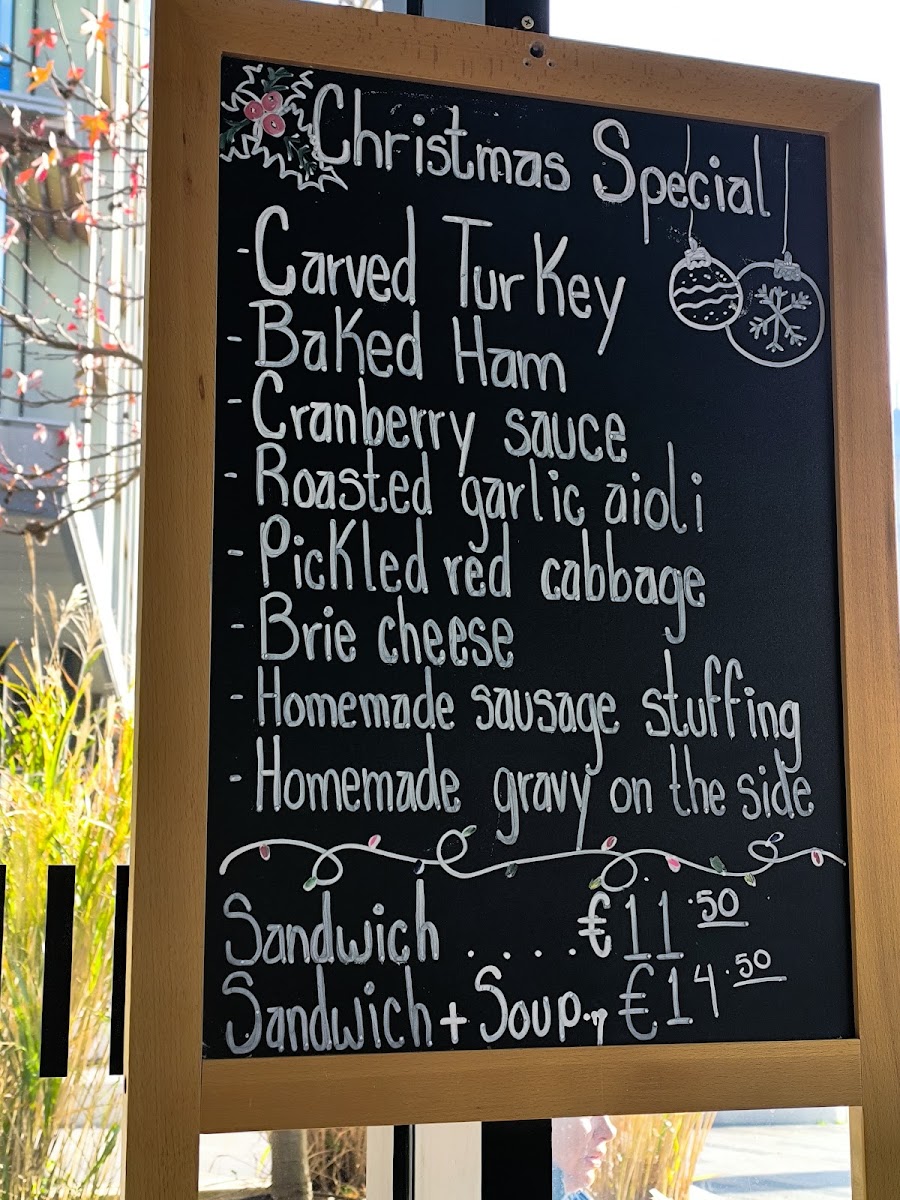 Christmas Special
- Carved Turkey
- Baked Ham
- Cranberry sauce
- Roasted garlic aioli
- Pickled red cabbage
- Brie cheese
- Homemade sausage stuffing
- Homemade gravy on the side
Sandwich . . . . . €11.50
Sandwich + Soup.. €14.50